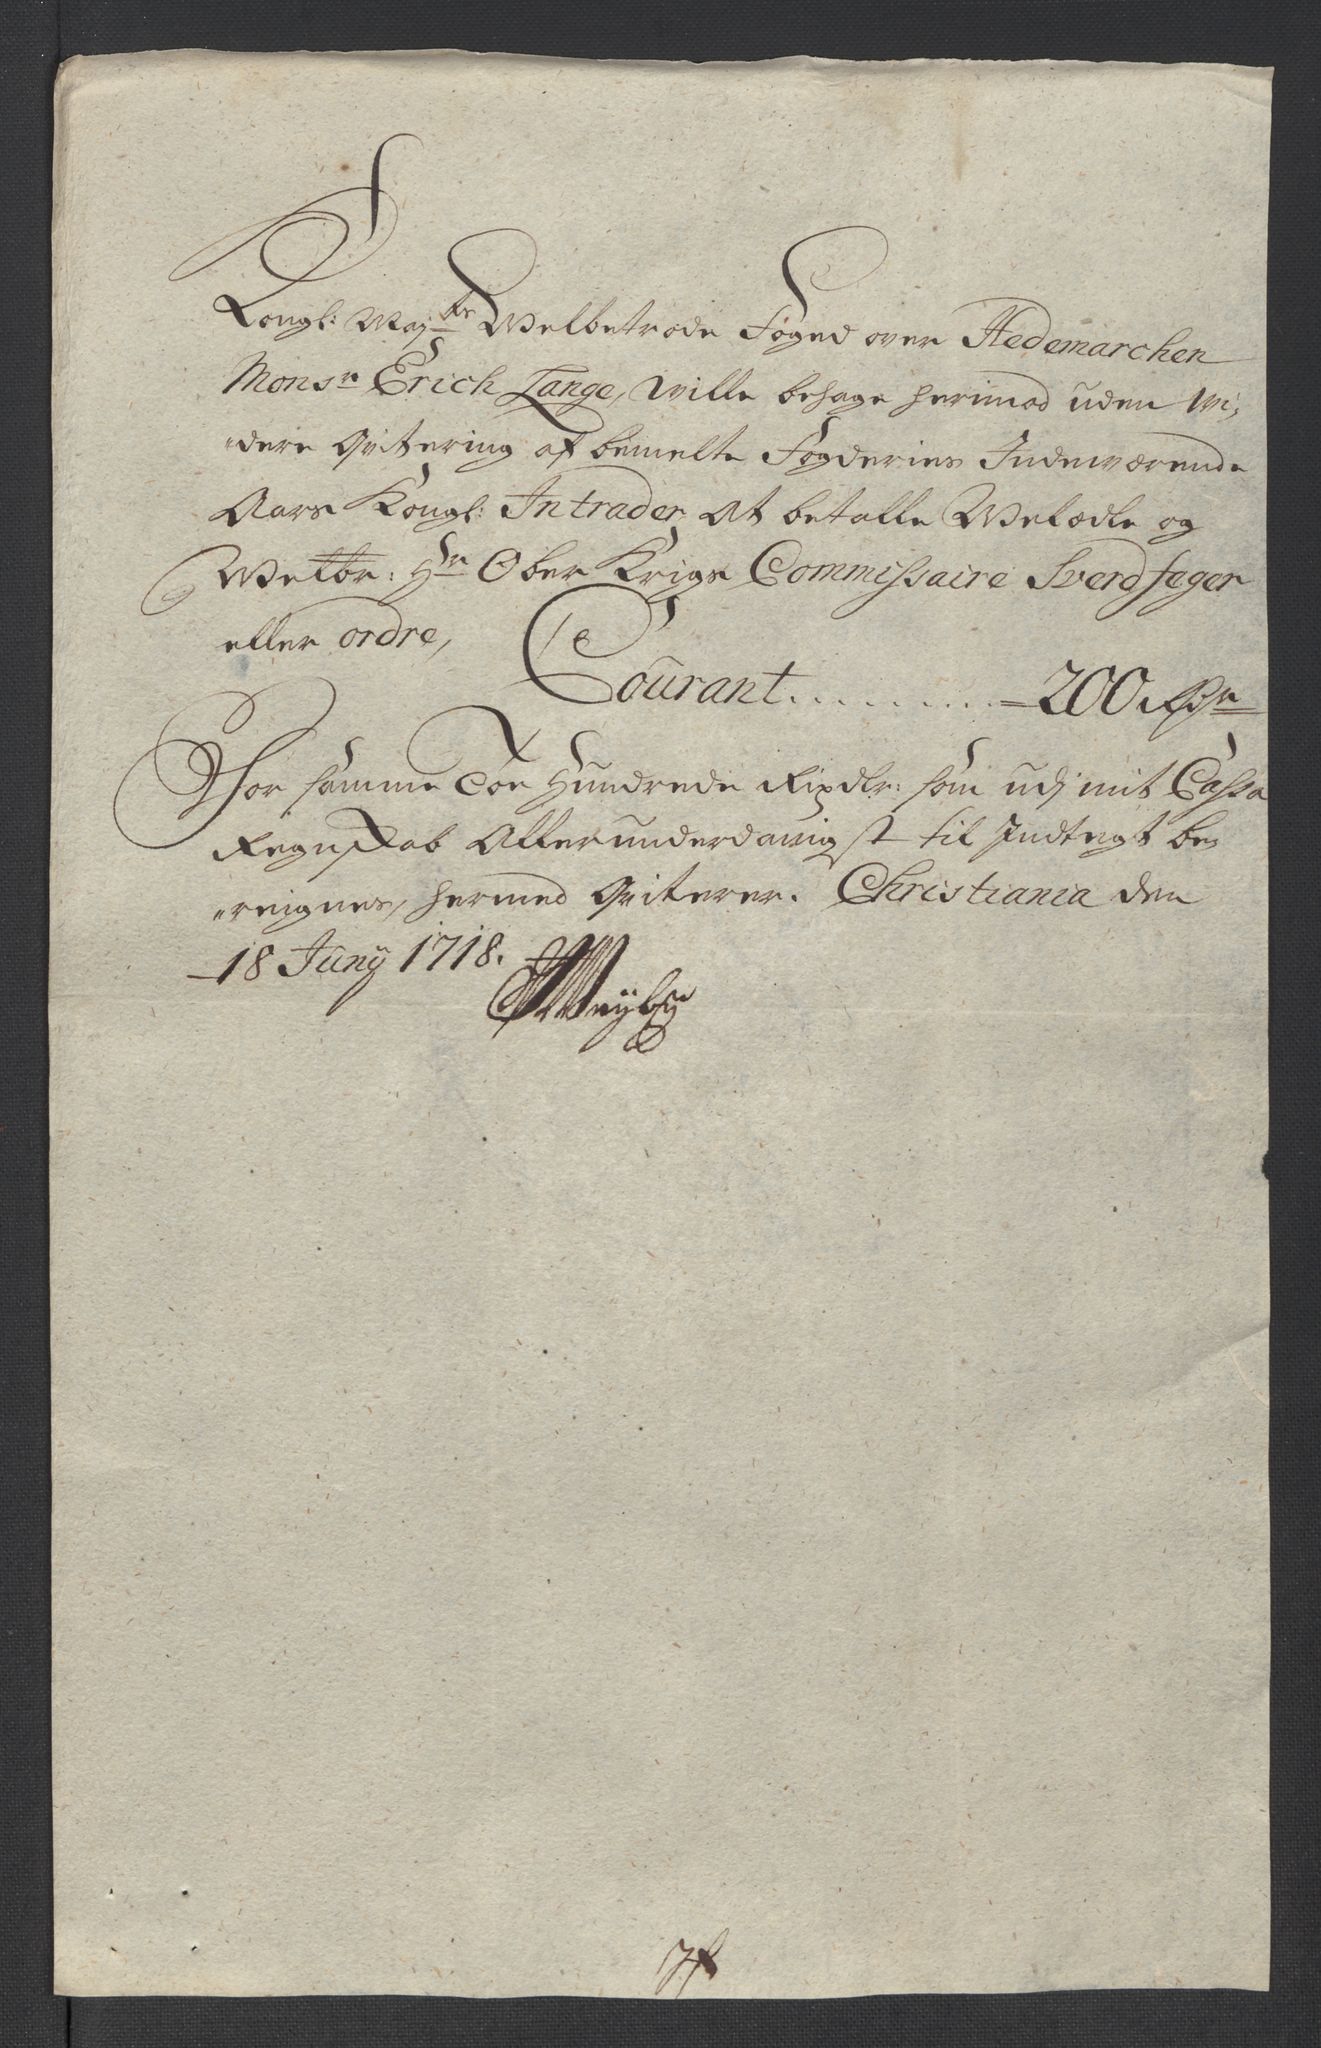 Kongl: Maj:ts Welbetrode Foged over Hedemarchen
Monsr Erich Lange, Wille behage herimod uden Wi,
„dere Qvitering af bemelte Fogderies Indeværende
Aars Kongl: Intrader At betalle Welædle og
Welbr: Hr Ober Krigs Commissaire Sverdfeger
eller ordre,
Courant.......... 200 Rdr
For samme Toe Hundrede Rixdlr: som udj mit Cassa
Regnskab Allerunderdanigst til Indtegt be„
„reignes, hermed Qviterer. Christiania den
18 Juny 1718.